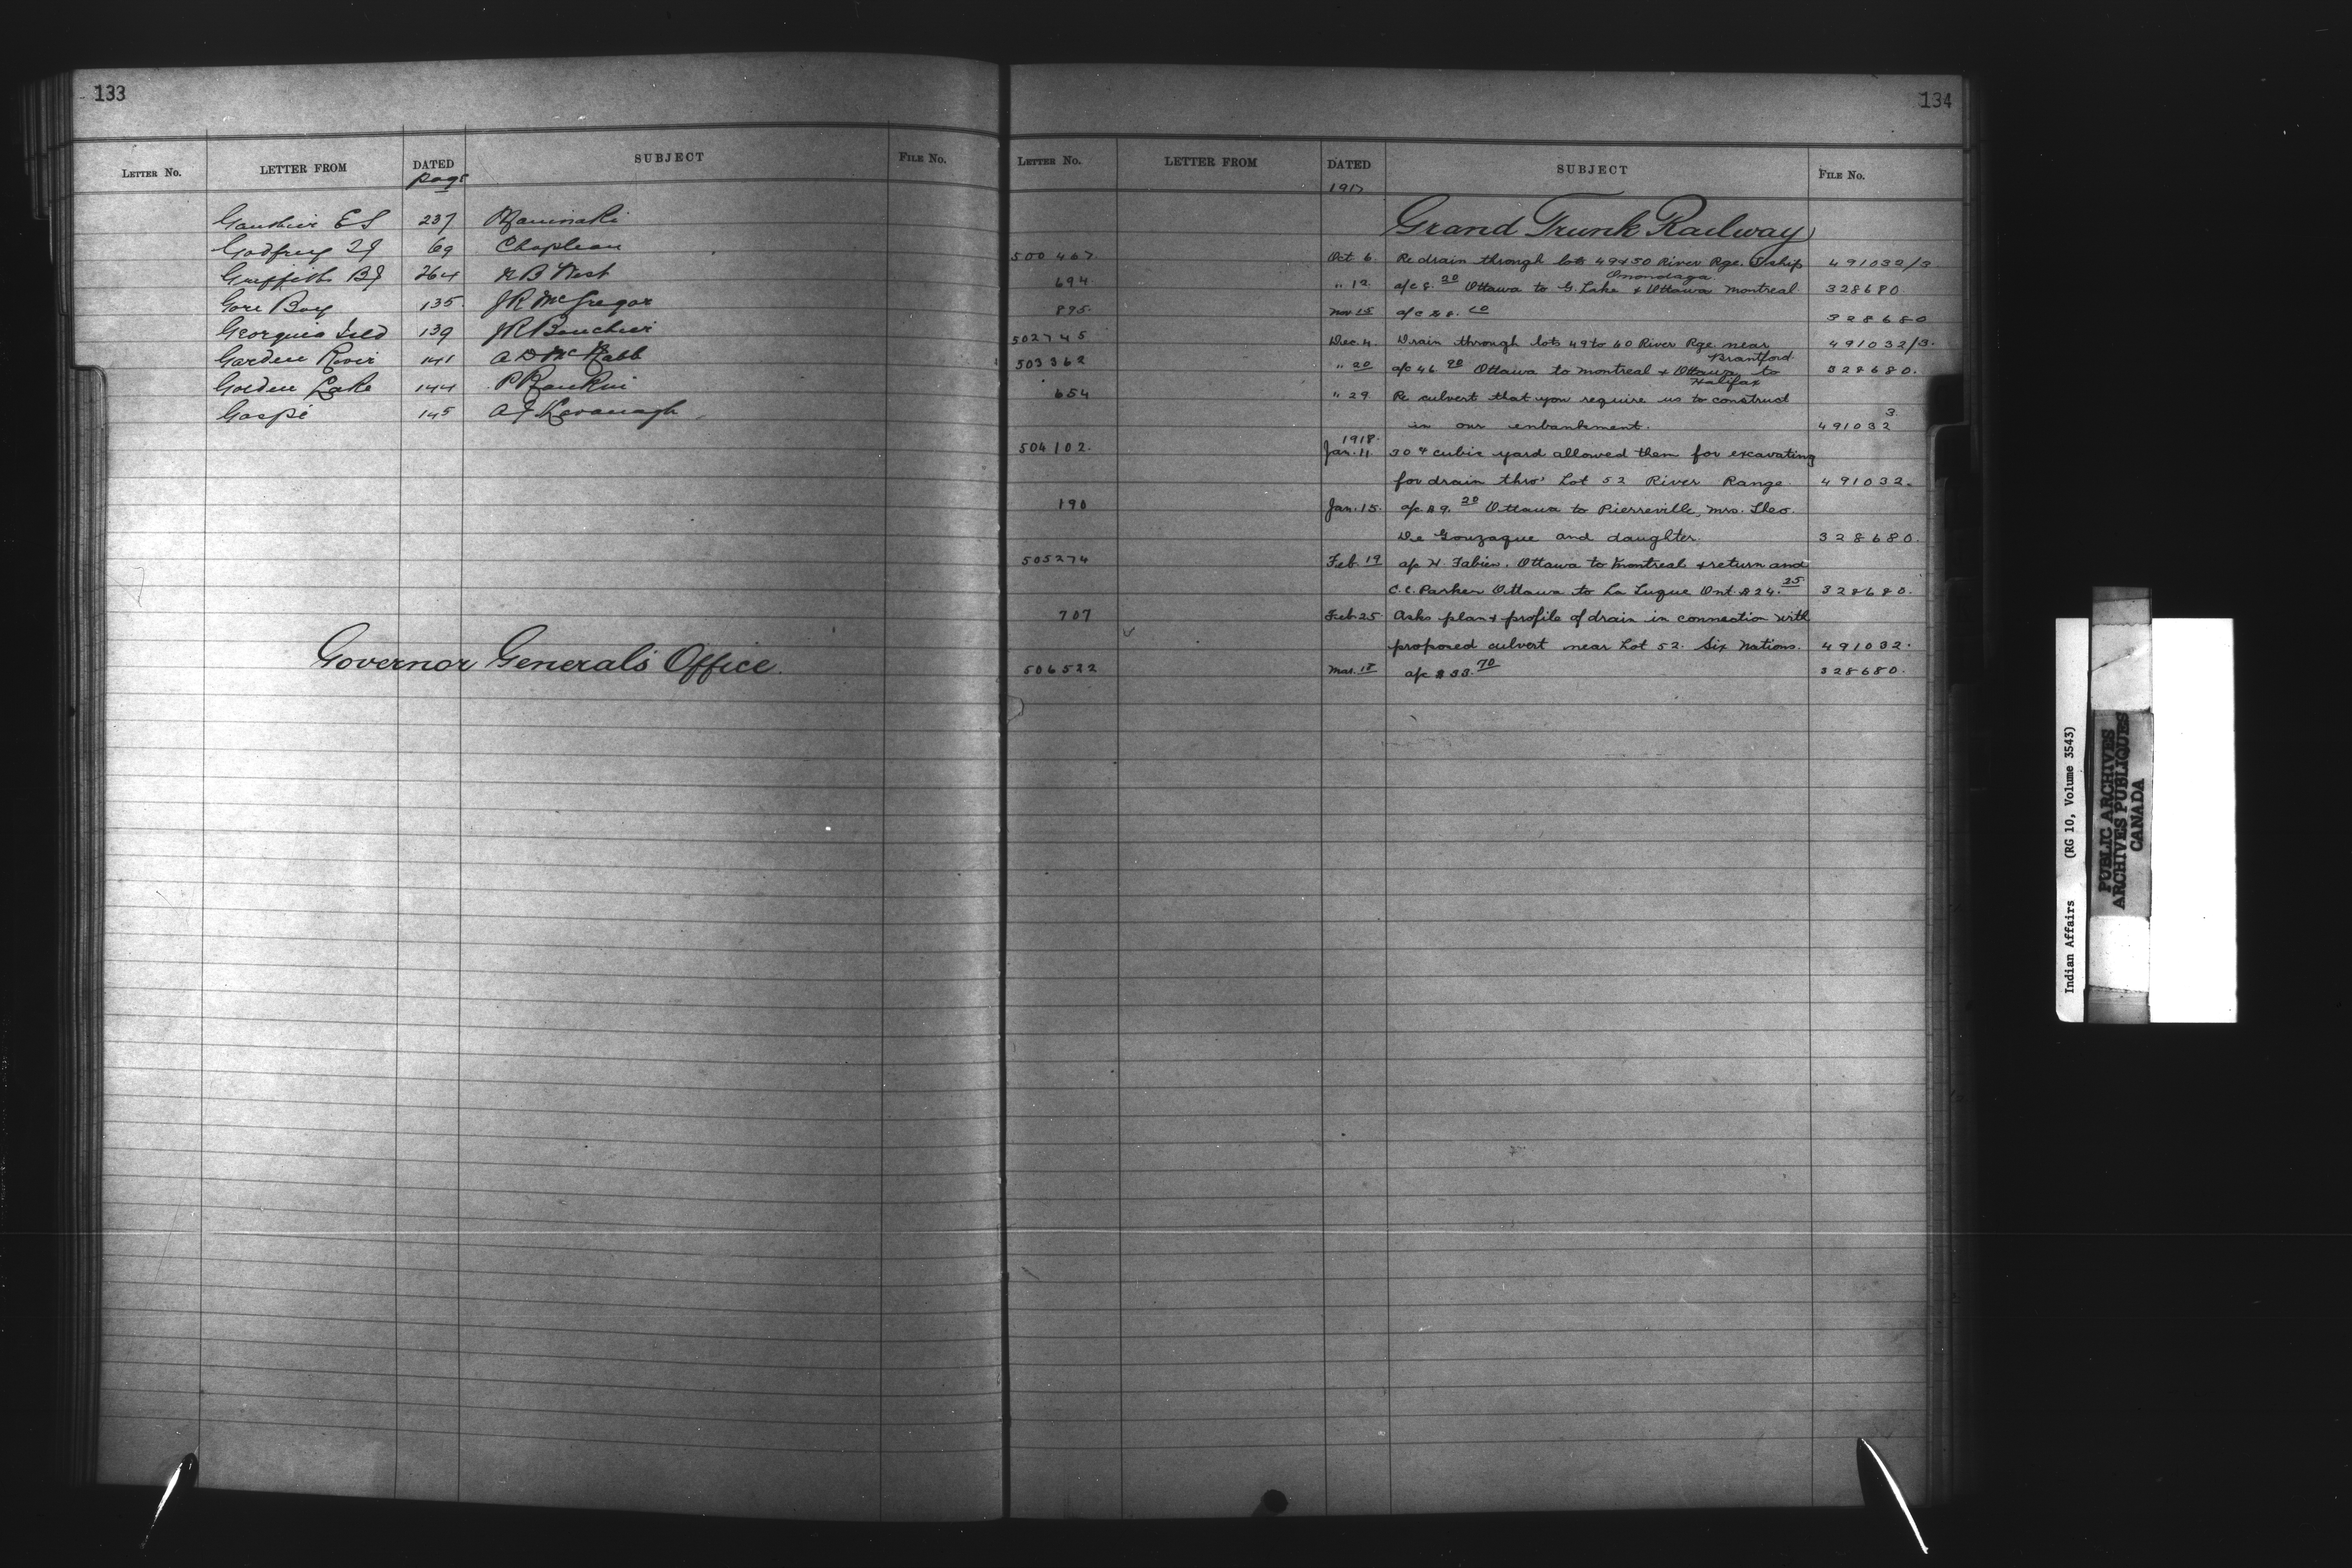 133
LETTER No. LETTER FROM DATED SUBJECT FILE No.
page
Gauthier E S 237 Maniwaki
Godfrey T J 69 Chapleau
Griffith B J 264 N B West
Gore Bay 135 J R McGregor
Georgina Isld 139 J R Bourchier
Garden River 141 A D McNabb
Golden Lake 144 P Rankin
Gaspé 145 A J Kavanagh
Governor General's Office.
134
LETTER No. LETTER FROM DATED SUBJECT FILE No.
1917
Grand Trunk Railway
500 467. Oct 6. Re drain through lots 49 & 50 River Rge. T'ship 491032/3
Onondaga.
694 " 12 a/c 8.20 Ottawa to G. Lake & Ottawa Montreal. 328680
895. Nov 15 a/c $8. 328680
502745 Dec. 4. Drain through lots 49 to 60 River Rge near 491032/3.
Brantford.
503362 " 20 a/c 46. 20 Ottawa to Montreal & Ottawa to 328680.
Halifax
654 " 29 Re culvert that you require us to construct
in our enbankment. 491032 3
1918.
504102. Jan. 11. 30 ¢ cubic yard allowed them for excavating
for drain thro' Lot 52 River Range. 491032.
190 Jan. 15. a/c $9. 20 Ottawa to Pierreville, Mrs. Theo.
De Gonzague and daughter. 328680.
505274 Feb. 19 a/c H. Fabien. Ottawa to Montreal & return and
C.C. Parker Ottawa to La Tuque Ont. $24. 25 328680.
707 Feb 25 Asks plan & profile of drain in connection with
proposed culvert near Lot 52. Six Nations. 491032.
506522 Mar. 18 a/c $33. 70 328680.
Indian Affairs (RG 10, Volume 3543)
PUBLIC ARCHIVES
ARCHIVES PUBLIQUES
CANADA